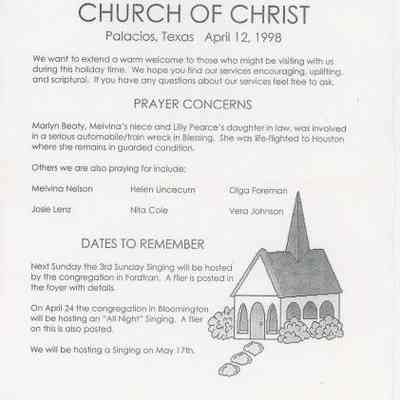 CHURCH OF CHRIST
Palacios, Texas April 12, 1998
We want to extend a warm welcome to those who might be visiting with us
during this holiday time. We hope you find our services encouraging, uplifting,
and scriptural. If you have any questions about our services feel free to ask.
PRAYER CONCERNS
Marlyn Beaty, Melvina's niece and Lilly Pearce's daughter in law, was involved
in a serious automobile/train wreck in Blessing. She was life-flighted to Houston
where she remains in guarded condition.
Others we are also praying for include:
Melvina Nelson Helen Lincecum Olga Foreman
Josie Lenz Nita Cole Vera Johnson
DATES TO REMEMBER
Next Sunday the 3rd Sunday Singing will be hosted
by the congregation in Fordtran. A flier is posted in
the foyer with details.
On April 24 the congregation in Bloomington
will be hosting an "All Night" Singing. A flier
on this is also posted.
We will be hosting a Singing on May 17th.